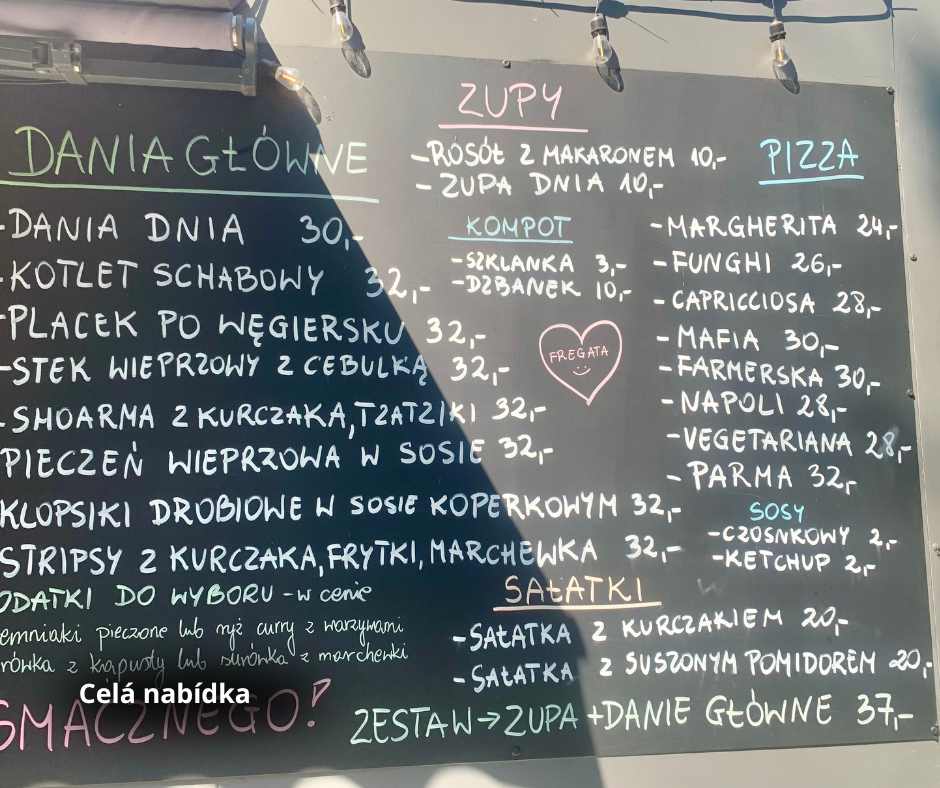 DANIA GŁÓWNE
-DANIA DNIA 30,-
-KOTLET SCHABOWY 32,-
-PLACEK PO WĘGIERSKU 32,-
-STEK WIEPRZOWY Z CEBULKĄ 32,-
-SHOARMA Z KURCZAKA, TZATZIKI 32,-
PIECZEŃ WIEPRZOWA W SOSIE 32,-
KLOPSIKI DROBIOWE W SOSIE KOPERKOWYM 32,-
STRIPSY Z KURCZAKA, FRYTKI, MARCHEWKA 32,-
ODATKI DO WYBORU - w cenie
emniaki pieczone lub ryż curry z warzywami
rówka z kapusty lub surówka z marchewki
SMACZNEGO!
ZUPY
-ROSÓŁ Z MAKARONEM 10,-
-ZUPA DNIA 10,-
KOMPOT
-SZKLANKA 3,-
-DZBANEK 10,-
FREGATA
PIZZA
-MARGHERITA 24,-
-FUNGHI 26,-
-CAPRICCIOSA 28,-
-MAFIA 30,-
-FARMERSKA 30,-
-NAPOLI 28,-
-VEGETARIANA 28,-
-PARMA 32,-
SOSY
-CZOSNKOWY 2,-
-KETCHUP 2,-
SAŁATKI
-SAŁATKA Z KURCZAKIEM 20,-
-SAŁATKA Z SUSZONYM POMIDOREM 20,-
ZESTAW→ZUPA+DANIE GŁÓWNE 37,-
Celá nabídka